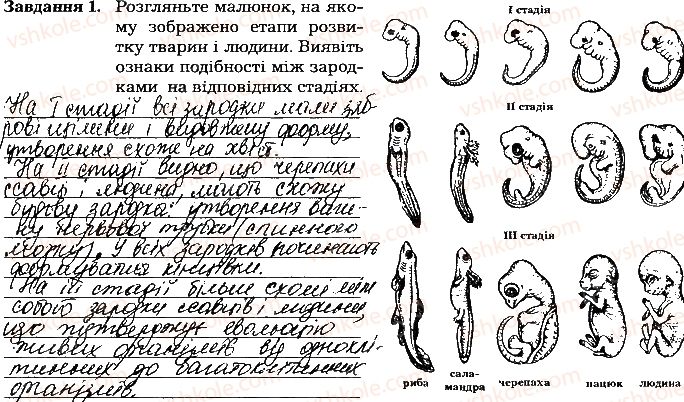 Завдання 1. Розгляньте малюнок, на яко-
му зображено етапи розви-
тку тварин і людини. Виявіть
ознаки подібності між зарод-
ками на відповідних стадіях.
На I стадії всі зародки мали зяб-
рові щілини і видовжену форму,
утворення схоже на хвіст.
На II стадії видно, що черепахи
ссавці і людина мають схожу
будову зародка: утворення
нервової трубки (спинного
мозку). У всіх зародків починають
формуватися кінцівки.
На III стадії більше схожі між
собою зародки ссавців і людини,
що підтверджує еволюцію
живих організмів від одноклі-
тинних до багатоклітинних
організмів.
I стадія
II стадія
III стадія
риба
сала-
мандра
черепаха
пацюк
людина
vshkole.com